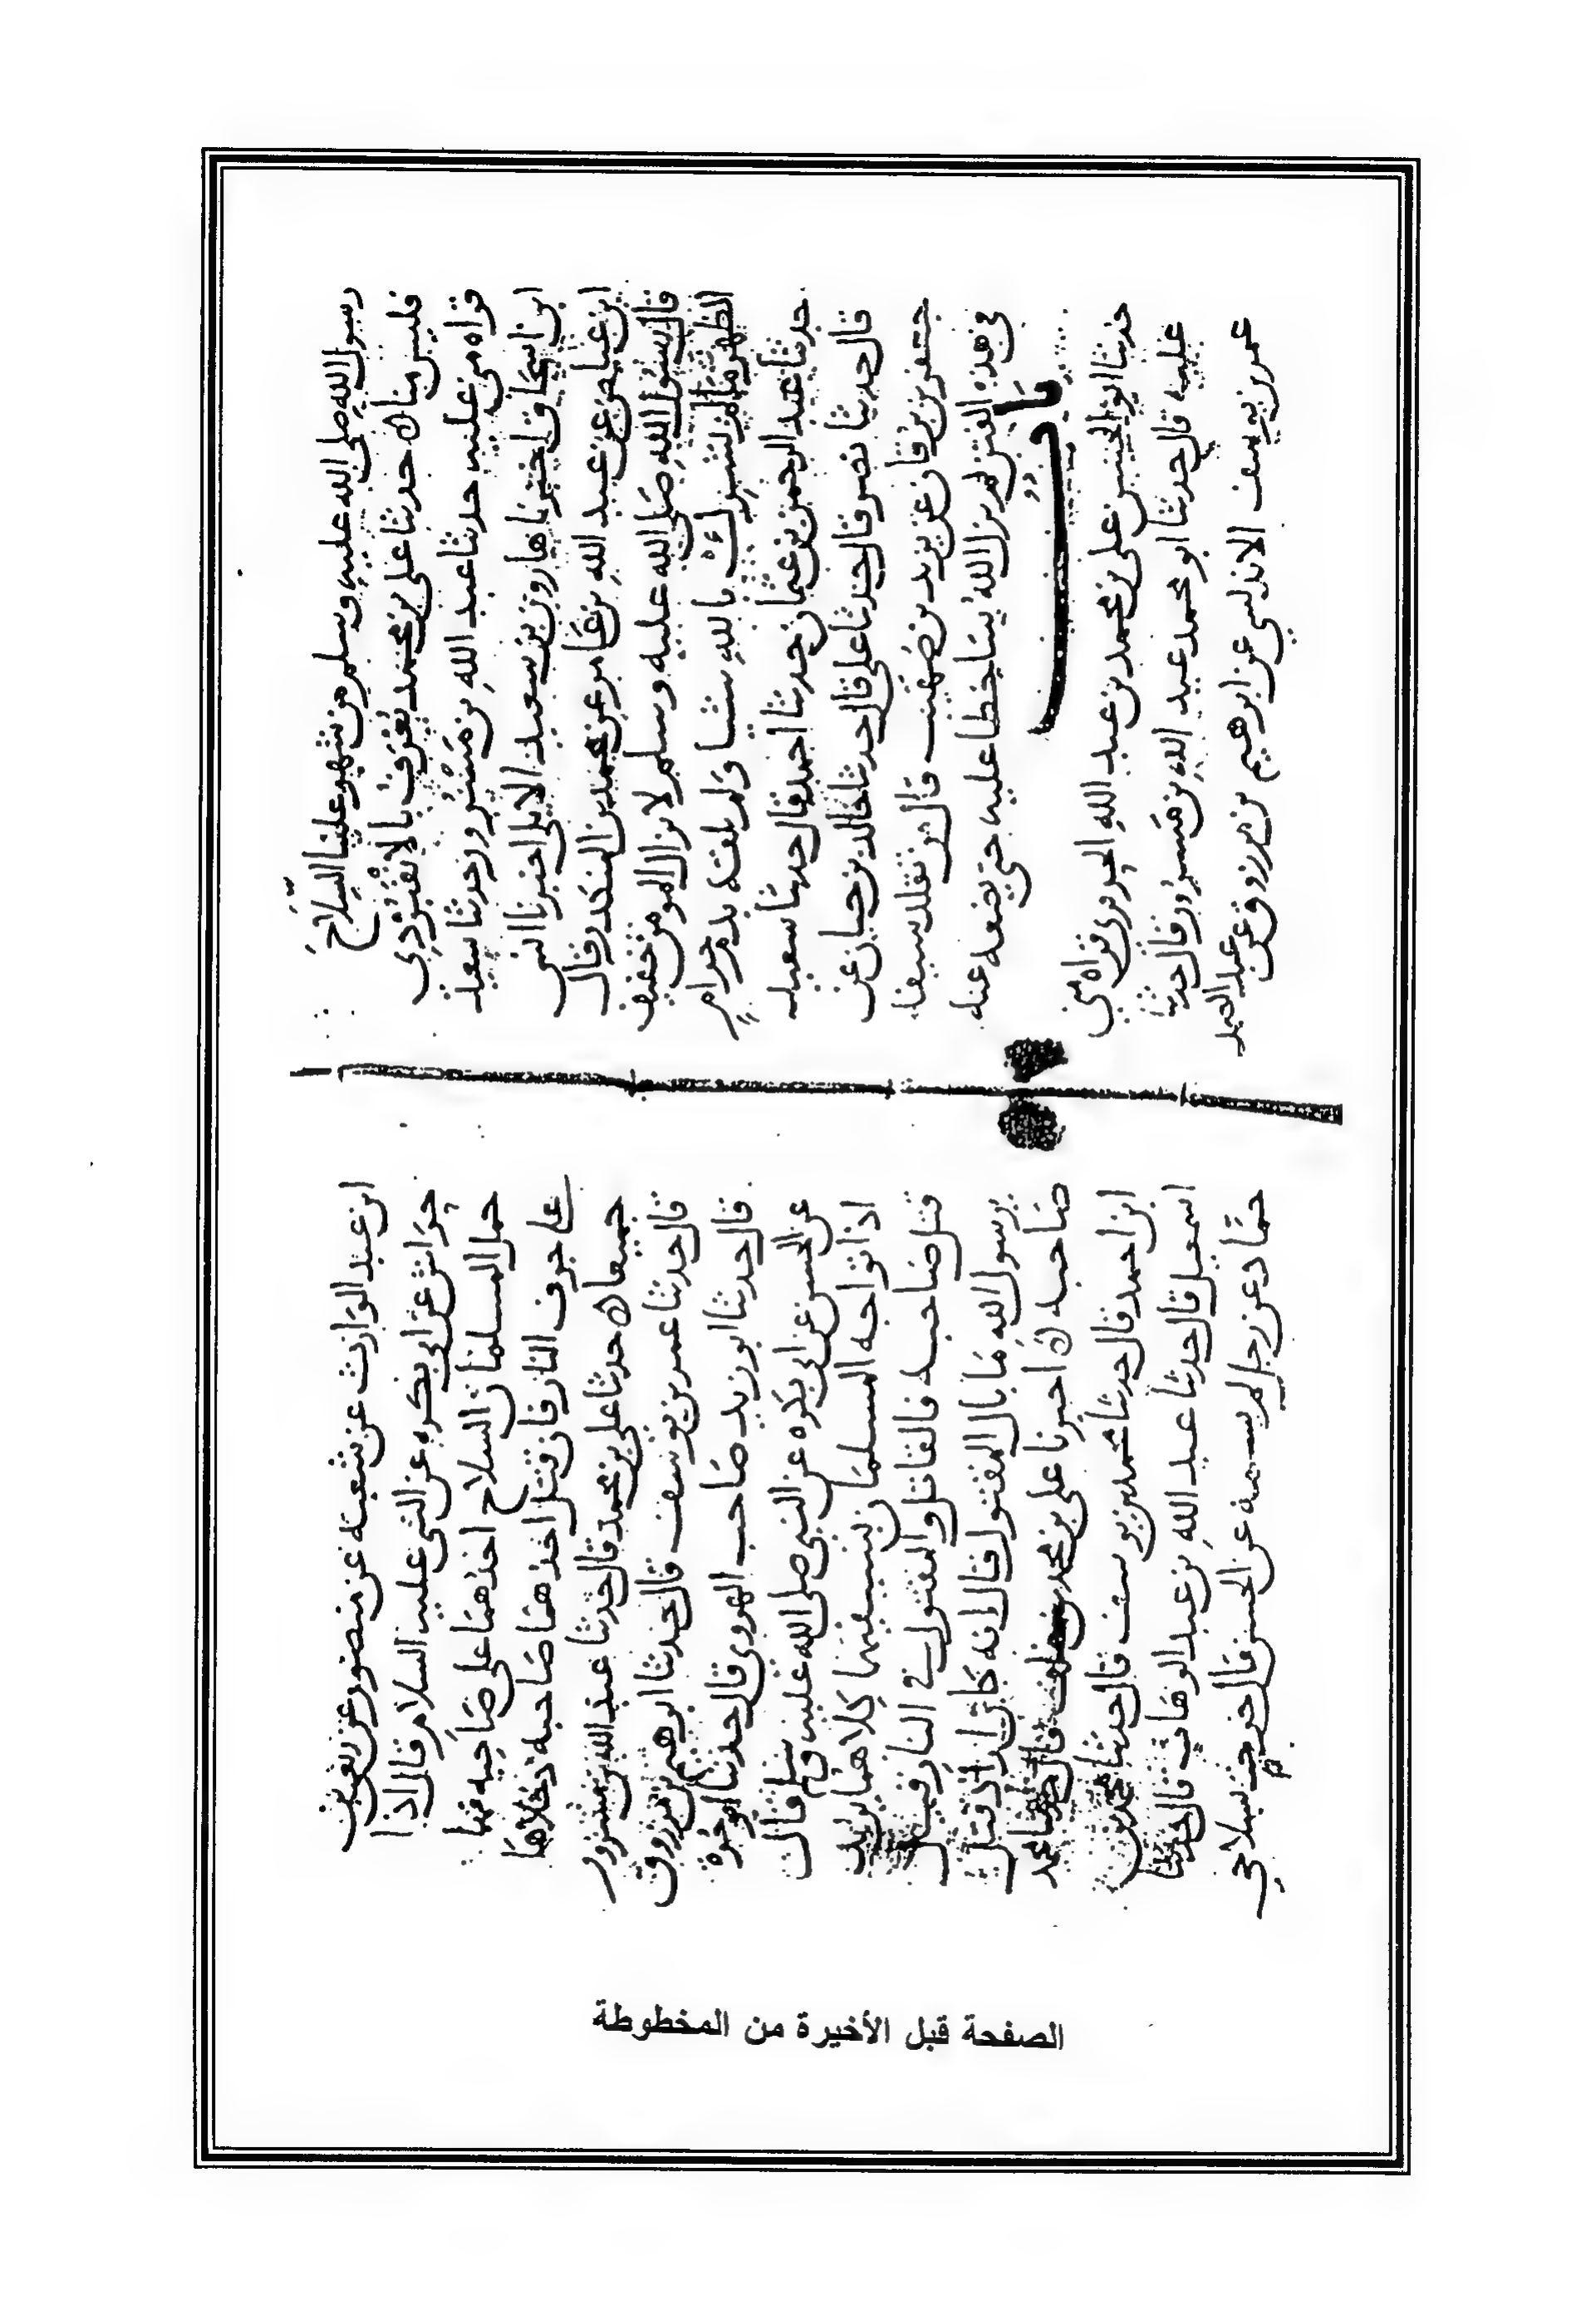 رسول الله صلى الله عليه وسلم من شهر علينا السلاح
فليس منا ۵ حدثنا علي بن محمد يعرف
قراه مني عليه حدثنا عبد الله بن مسرور حدثنا سعيد
ابن اسحاق اخبرنا هارون بن سعيد الايلي اخبرنا انس
ابن عياض عن عبد الله بن عامر عن محمد بن المنكدر قال
قال رسول الله صلى الله عليه وسلم لا يزال المومن خفيف
الظهر ما لم يشرك بالله شيا ولم يلقه بدم حرام
حدثنا عبد الرحمن بن عثمان حدثنا احمد قال حدثنا سعيد
قال حدثنا نصر قال حدثنا علي قال حدثنا خالد بن حيان عن
جعفر بن برقان عن يزيد بن صهيب قال من تقلد سيفا
في هذه الفتن لم يزل الله ساخطا عليه حتى يضعه عنه
باب
حدثنا ابو الحسن علي بن محمد بن عبد الله الحروري قراه مني
عليه قال حدثنا ابو محمد عبد الله بن مسرور قال حدثنا
عمر بن يوسف الاندلسي عن ابرهيم بن مرزوق عن عبد الصمد
ابن عبد الوارث عن شعبة عن منصور عن ربعي بن
حراش عن ابي بكره عن النبي عليه السلام قال اذا
حمل المسلمان السلاح احدهما على صاحبه فهما
على جرف النار فان قتل احدهما صاحبه دخلاها
جميعا ۵ حدثنا علي بن محمد قال حدثنا عبد الله بن مسرور
قال حدثنا عمر بن يوسف قال حدثنا ابرهيم بن مرزوق
قال حدثنا ابو زيد صاحب الهروي قال حدثنا ابو حرة
عن الحسن عن ابي بكره عن النبي صلى الله عليه وسلم قال
اذا تواجه المسلمان بسيفيهما كلاهما يريد
قتل صاحبه فالقاتل والمقتول في النار قيل
يرسول الله ما بال المقتول قال انه كان اراد قتل
صاحبه ۵ اخبرنا علي بن محمد بن خلف قال حدثنا محمد
ابن احمد قال حدثنا محمد بن يوسف قال حدثنا محمد بن
اسمعيل قال حدثنا عبد الله بن عبد الوهاب قال حدثنا
حماد عن رجل لم يسمه عن الحسن قال خرجت بسلاحي
الصفحة قبل الأخيرة من المخطوطة